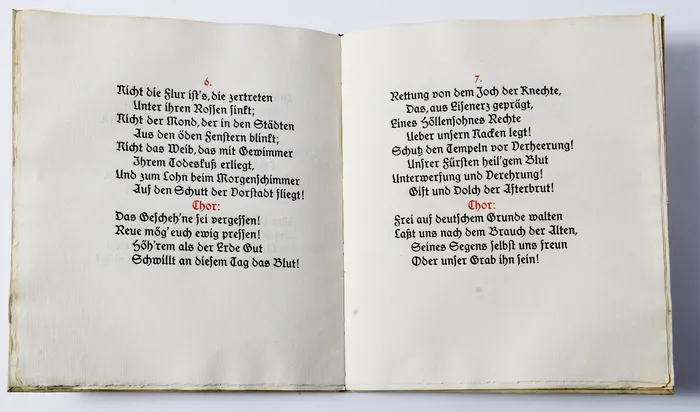 6.
Nicht die Flur ist's, die zertreten
Unter ihren Rossen sinkt;
Nicht der Mond, der in den Städten
Aus den öden Fenstern blinkt;
Nicht das Weib, das mit Gewimmer
Ihrem Todeskuß erliegt,
Und zum Lohn beim Morgenschimmer
Auf den Schutt der Vorstadt fliegt!
Chor:
Das Gescheh'ne sei vergessen!
Reue mög' euch ewig pressen!
Höh'rem als der Erde Gut
Schwillt an diesem Tag das Blut!
7.
Rettung von dem Joch der Knechte,
Das, aus Eisenerz geprägt,
Eines Höllensohnes Rechte
Ueber unsern Nacken legt!
Schutz den Tempeln vor Verheerung!
Unsrer Fürsten heil'gem Blut
Unterwerfung und Verehrung!
Gift und Dolch der Afterbrut!
Chor:
Frei auf deutschem Grunde walten
Laßt uns nach dem Brauch der Alten,
Seines Segens selbst uns freun
Oder unser Grab ihn sein!